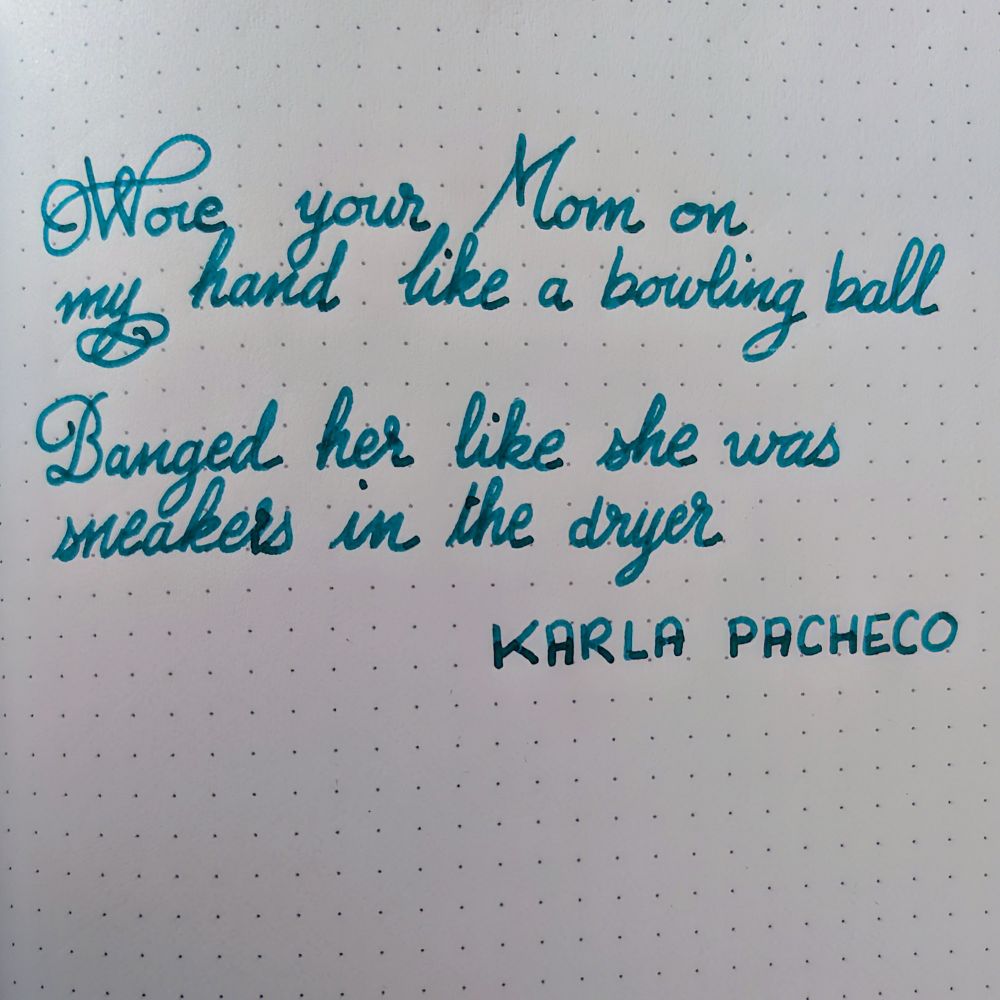 Wore your Mom on
my hand like a bowling ball
Banged her like she was
sneakers in the dryer
KARLA PACHECO